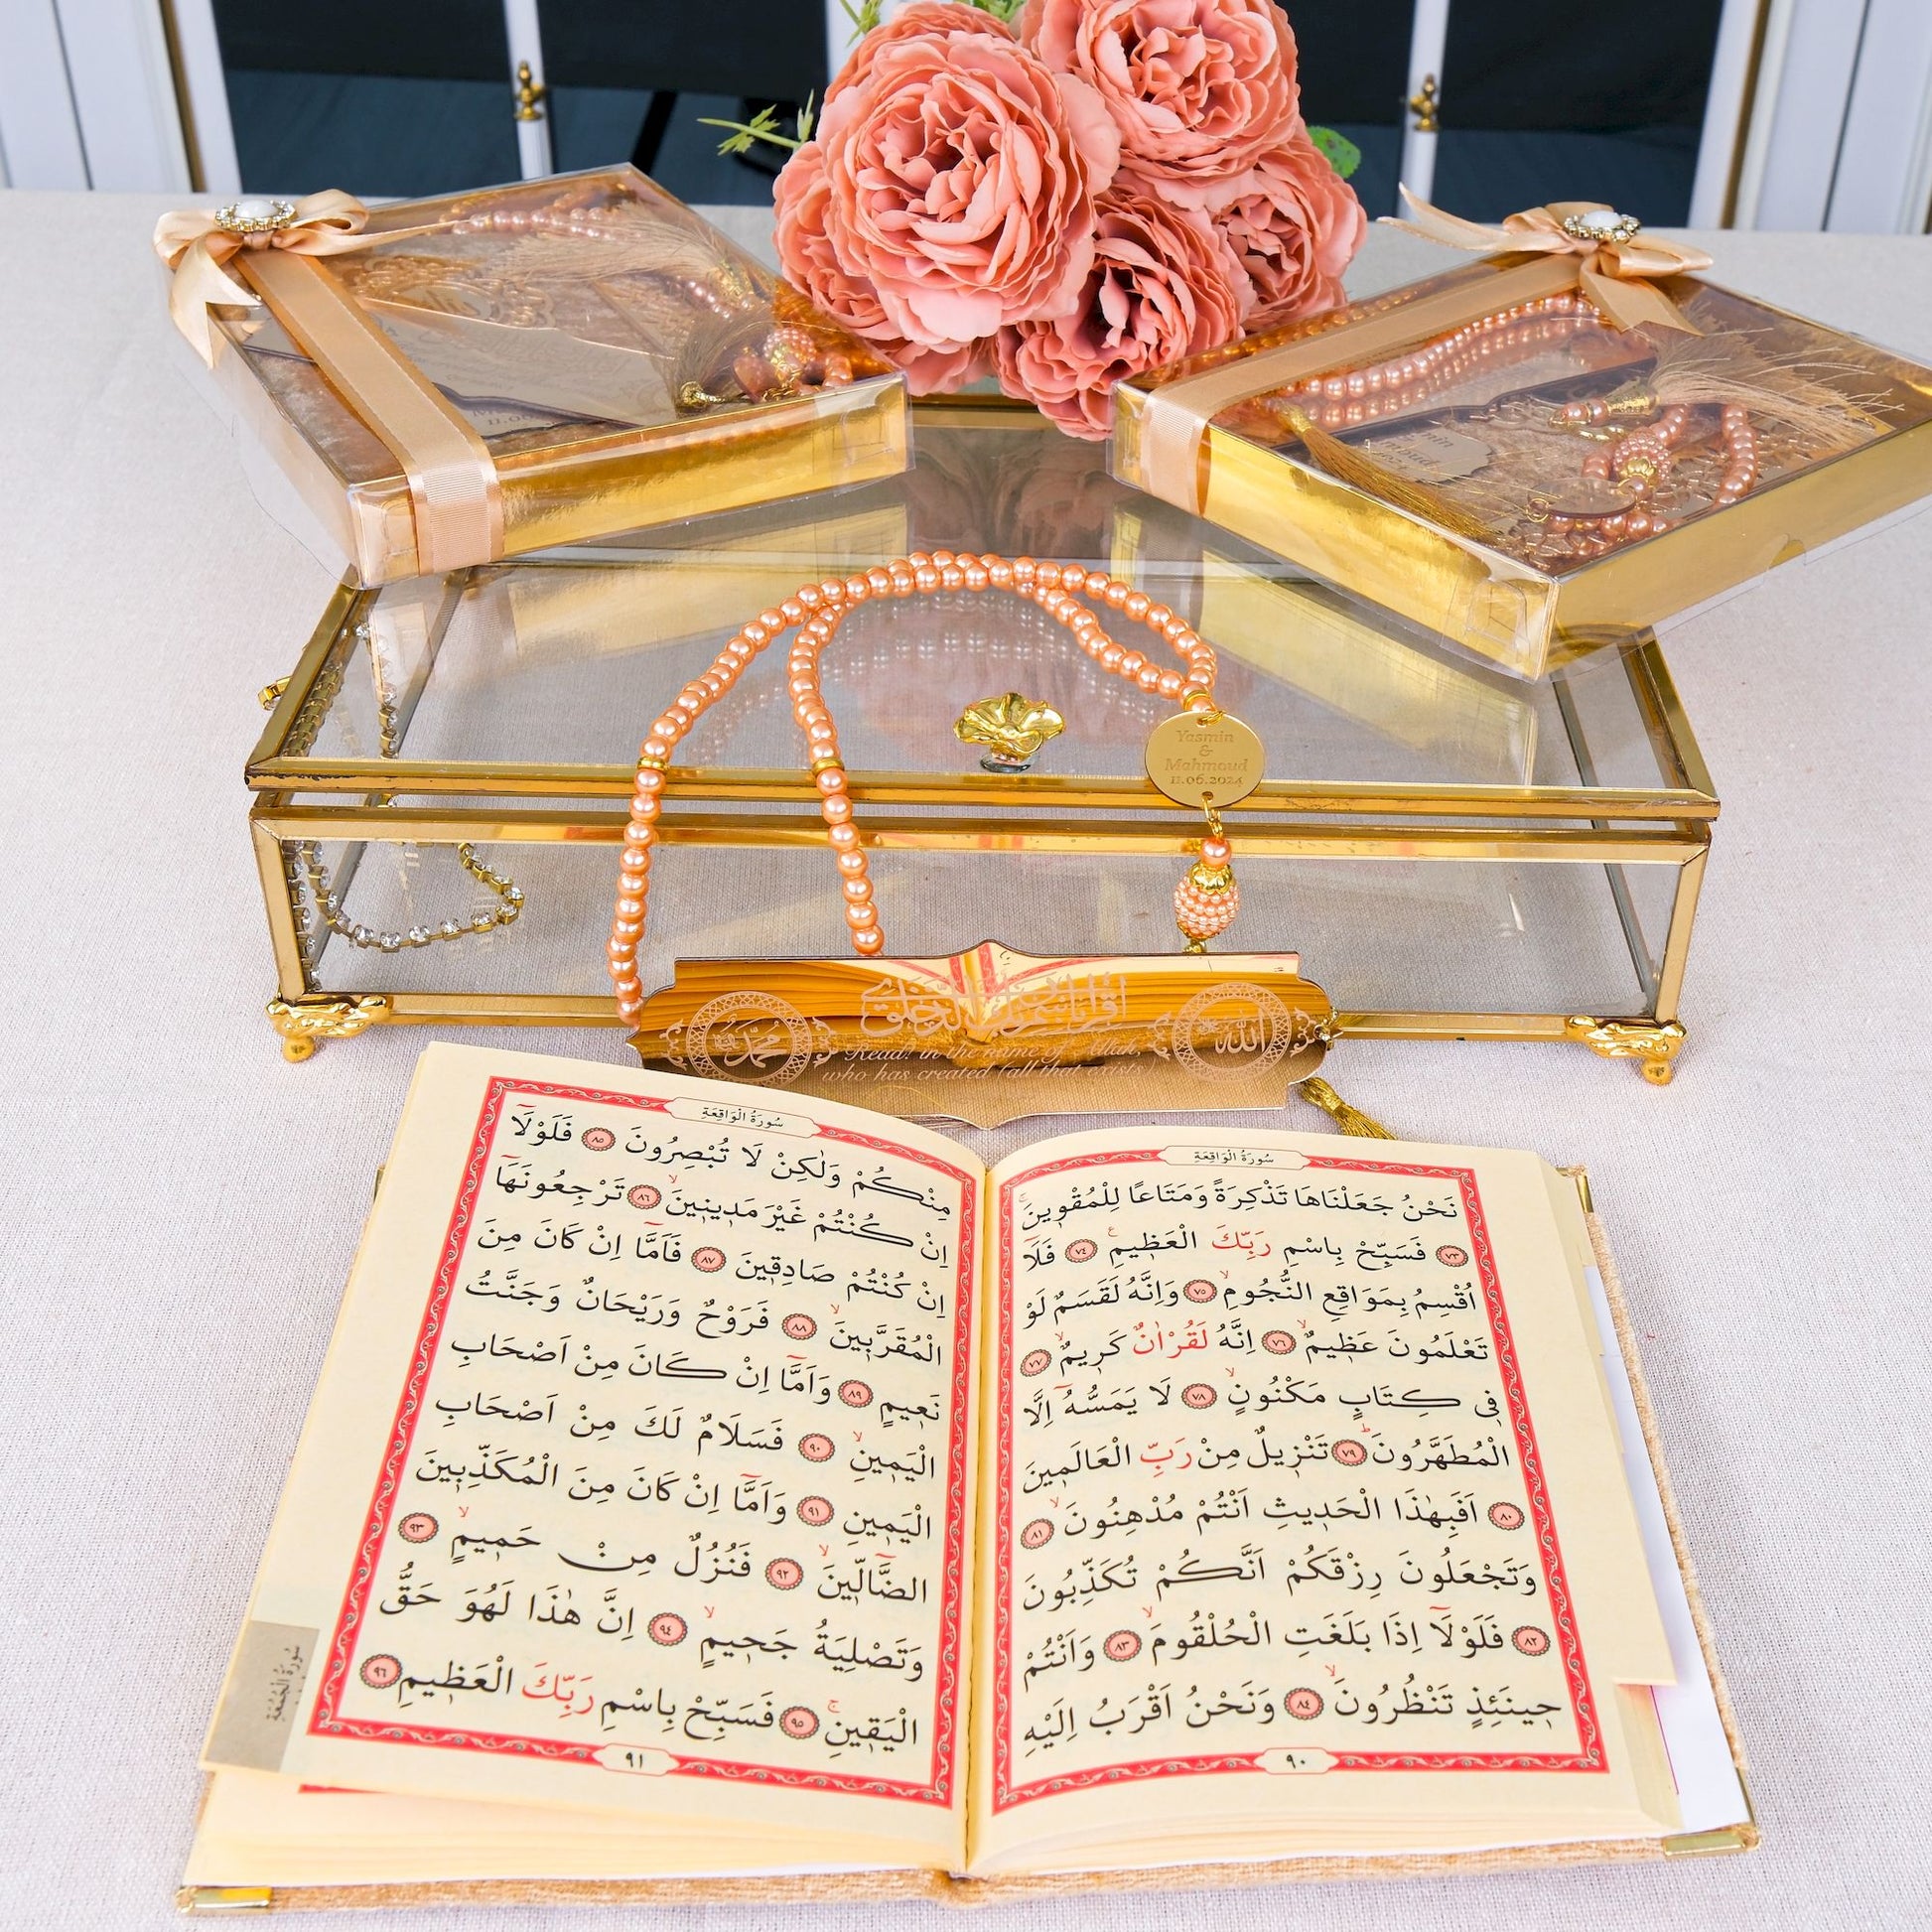 Yasmin
&
Mahmoud
11.06.2024
محمد
الله
Read! in the name of Allah,
who has created (all that exists)
سُورَةُ الْوَاقِعَةِ
نَحْنُ جَعَلْنَاهَا تَذْكِرَةً وَمَتَاعًا لِلْمُقْوِينَۚ
﴿٧٣﴾ فَسَبِّحْ بِاسْمِ رَبِّكَ الْعَظِيمِ ﴿٧٤﴾ فَلَٓا
اُقْسِمُ بِمَوَاقِعِ النُّجُومِۙ ﴿٧٥﴾ وَاِنَّهُ لَقَسَمٌ لَوْ
تَعْلَمُونَ عَظِيمٌۙ ﴿٧٦﴾ اِنَّهُ لَقُرْاٰنٌ كَرِيمٌۙ ﴿٧٧﴾
فِي كِتَابٍ مَكْنُونٍۙ ﴿٧٨﴾ لَا يَمَسُّهُٓ اِلَّا
الْمُطَهَّرُونَۜ ﴿٧٩﴾ تَنْزِيلٌ مِنْ رَبِّ الْعَالَمِينَ
﴿٨٠﴾ اَفَبِهٰذَا الْحَدِيثِ اَنْتُمْ مُدْهِنُونَۙ ﴿٨١﴾
وَتَجْعَلُونَ رِزْقَكُمْ اَنَّكُمْ تُكَذِّبُونَ
﴿٨٢﴾ فَلَوْلَٓا اِذَا بَلَغَتِ الْحُلْقُومَۙ ﴿٨٣﴾ وَاَنْتُمْ
حِينَئِذٍ تَنْظُرُونَۙ ﴿٨٤﴾ وَنَحْنُ اَقْرَبُ اِلَيْهِ
٩٠
سُورَةُ الْوَاقِعَةِ
مِنْكُمْ وَلٰكِنْ لَا تُبْصِرُونَ ﴿٨٥﴾ فَلَوْلَٓا
اِنْ كُنْتُمْ غَيْرَ مَدِينِينَۙ ﴿٨٦﴾ تَرْجِعُونَهَٓا
اِنْ كُنْتُمْ صَادِقِينَ ﴿٨٧﴾ فَاَمَّٓا اِنْ كَانَ مِنَ
الْمُقَرَّبِينَۙ ﴿٨٨﴾ فَرَوْحٌ وَرَيْحَانٌ وَجَنَّتُ
نَعِيمٍ ﴿٨٩﴾ وَاَمَّٓا اِنْ كَانَ مِنْ اَصْحَابِ
الْيَمِينِۙ ﴿٩٠﴾ فَسَلَامٌ لَكَ مِنْ اَصْحَابِ
الْيَمِينِ ﴿٩١﴾ وَاَمَّٓا اِنْ كَانَ مِنَ الْمُكَذِّبِينَ
الضَّٓالِّينَۙ ﴿٩٢﴾ فَنُزُلٌ مِنْ حَمِيمٍۙ ﴿٩٣﴾
وَتَصْلِيَةُ جَحِيمٍۙ ﴿٩٤﴾ اِنَّ هٰذَا لَهُوَ حَقُّ
الْيَقِينِۚ ﴿٩٥﴾ فَسَبِّحْ بِاسْمِ رَبِّكَ الْعَظِيمِ ﴿٩٦﴾
٩١
سُورَةُ الْجُمُعَةِ